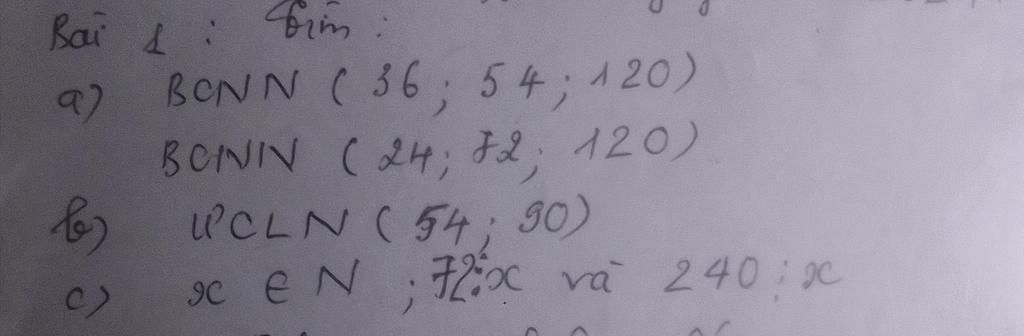 Bài 1 : Tìm :
a) BCNN ( 36 ; 54 ; 120 )
BCNN ( 24 ; 72 ; 120 )
b) ƯCLN ( 54 ; 90 )
c) x ∈ N ; 72 ⋮ x và 240 ⋮ x